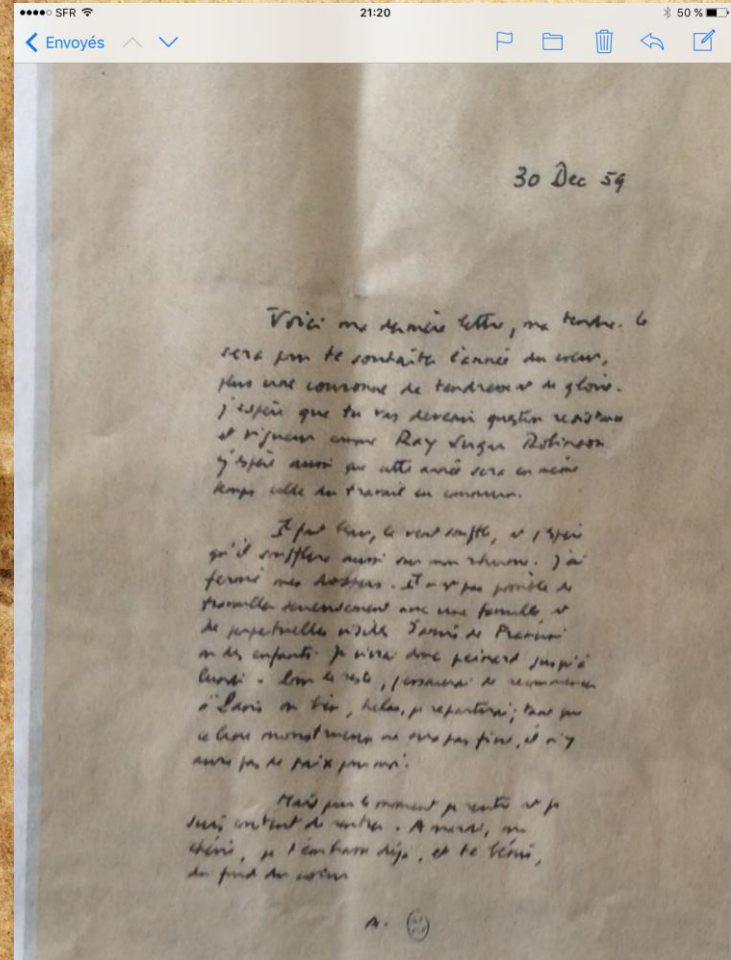 SFR 21:20 50 %
Envoyés
30 Dec 59
Voici ma dernière lettre, ma tendre. Ce
sera pour te souhaiter l'année du coeur,
plus une couronne de tendresse et de gloire.
J'espère que tu vas devenir question resistance
et vigueur comme Ray Sugar Robinson
J'espère aussi que cette année sera en même
temps celle du travail en commun.
Il fait beau, le vent souffle, et j'espère
qu'il soufflera aussi sur mon rhume. J'ai
fermé mes dossiers. Il n'est pas possible de
travailler sérieusement avec une famille et
de perpetuelles visites d'amis de Francine
ou des enfants. Je vivrai donc peinard jusqu'à
lundi. Pour le reste, j'essaierai de recommencer
à Paris ou bien, helas, je repartirai; tant que
ce livre monstrueux ne sera pas fini, il n'y
aura pas de paix pour moi.
Mais pour le moment je rentre et je
suis content de rentrer. A mardi, ma
chérie, je t'embrasse déjà, et te bénis,
du fond du coeur
A.